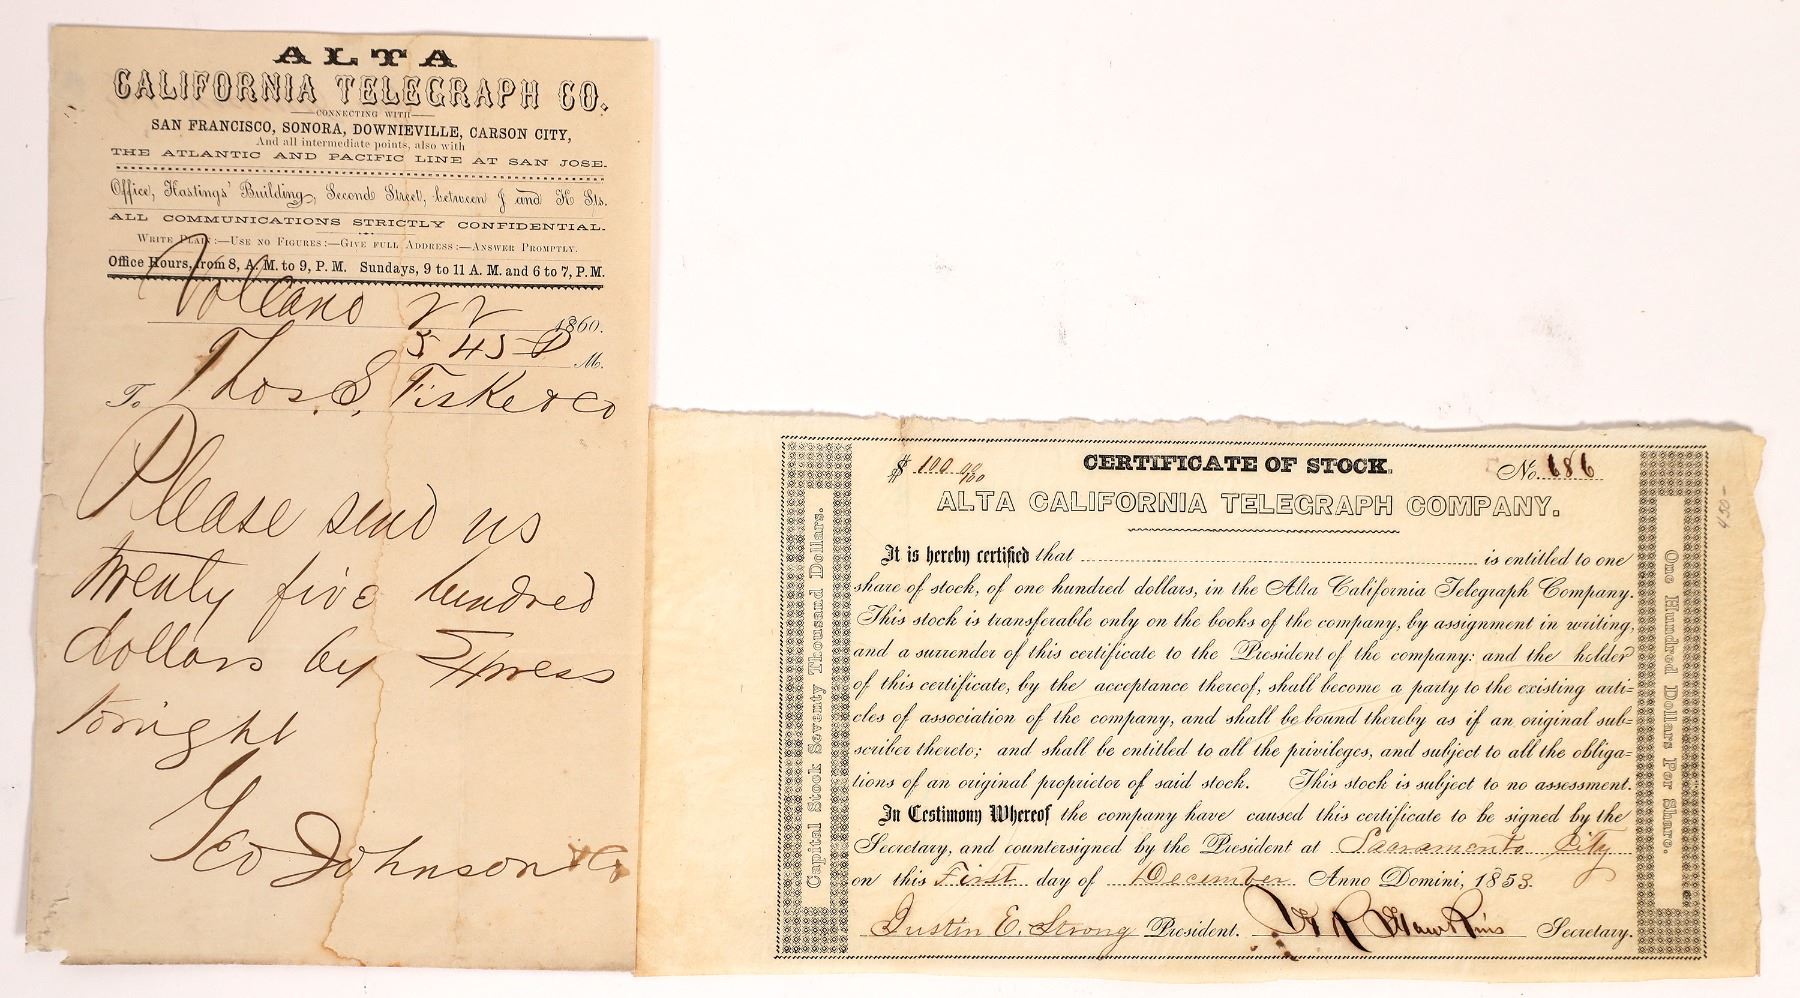 ALTA
CALIFORNIA TELEGRAPH CO.
CONNECTING WITH
SAN FRANCISCO, SONORA, DOWNIEVILLE, CARSON CITY,
And all intermediate points, also with
THE ATLANTIC AND PACIFIC LINE AT SAN JOSE.
Office, Hastings' Building, Second Street, between J and K Sts.
ALL COMMUNICATIONS STRICTLY CONFIDENTIAL.
WRITE PLAIN:—USE NO FIGURES:—GIVE FULL ADDRESS:—ANSWER PROMPTLY.
Office Hours, from 8, A. M. to 9, P. M. Sundays, 9 to 11 A. M. and 6 to 7, P. M.
Volcano 22 1860.
5 45 P M.
To Thos. S, Fiske & Co
Please send us
twenty five hundred
dollars by Express
tonight
Geo Johnson & Co
$ 100 00/100
CERTIFICATE OF STOCK.
No. 686
ALTA CALIFORNIA TELEGRAPH COMPANY.
It is hereby certified that is entitled to one
share of stock, of one hundred dollars, in the Alta California Telegraph Company.
This stock is transferable only on the books of the company, by assignment in writing,
and a surrender of this certificate to the President of the company: and the holder
of this certificate, by the acceptance thereof, shall become a party to the existing arti=
cles of association of the company, and shall be bound thereby as if an original sub=
scriber thereto; and shall be entitled to all the privileges, and subject to all the obliga=
tions of an original proprietor of said stock. This stock is subject to no assessment.
In Testimony Whereof the company have caused this certificate to be signed by the
Secretary, and countersigned by the President at Sacramento City
on this First day of December Anno Domini, 1853.
Justin E. Strong President. W R Hawkins Secretary.
Capital Stock Seventy Thousand Dollars.
One Hundred Dollars Per Share.
450-